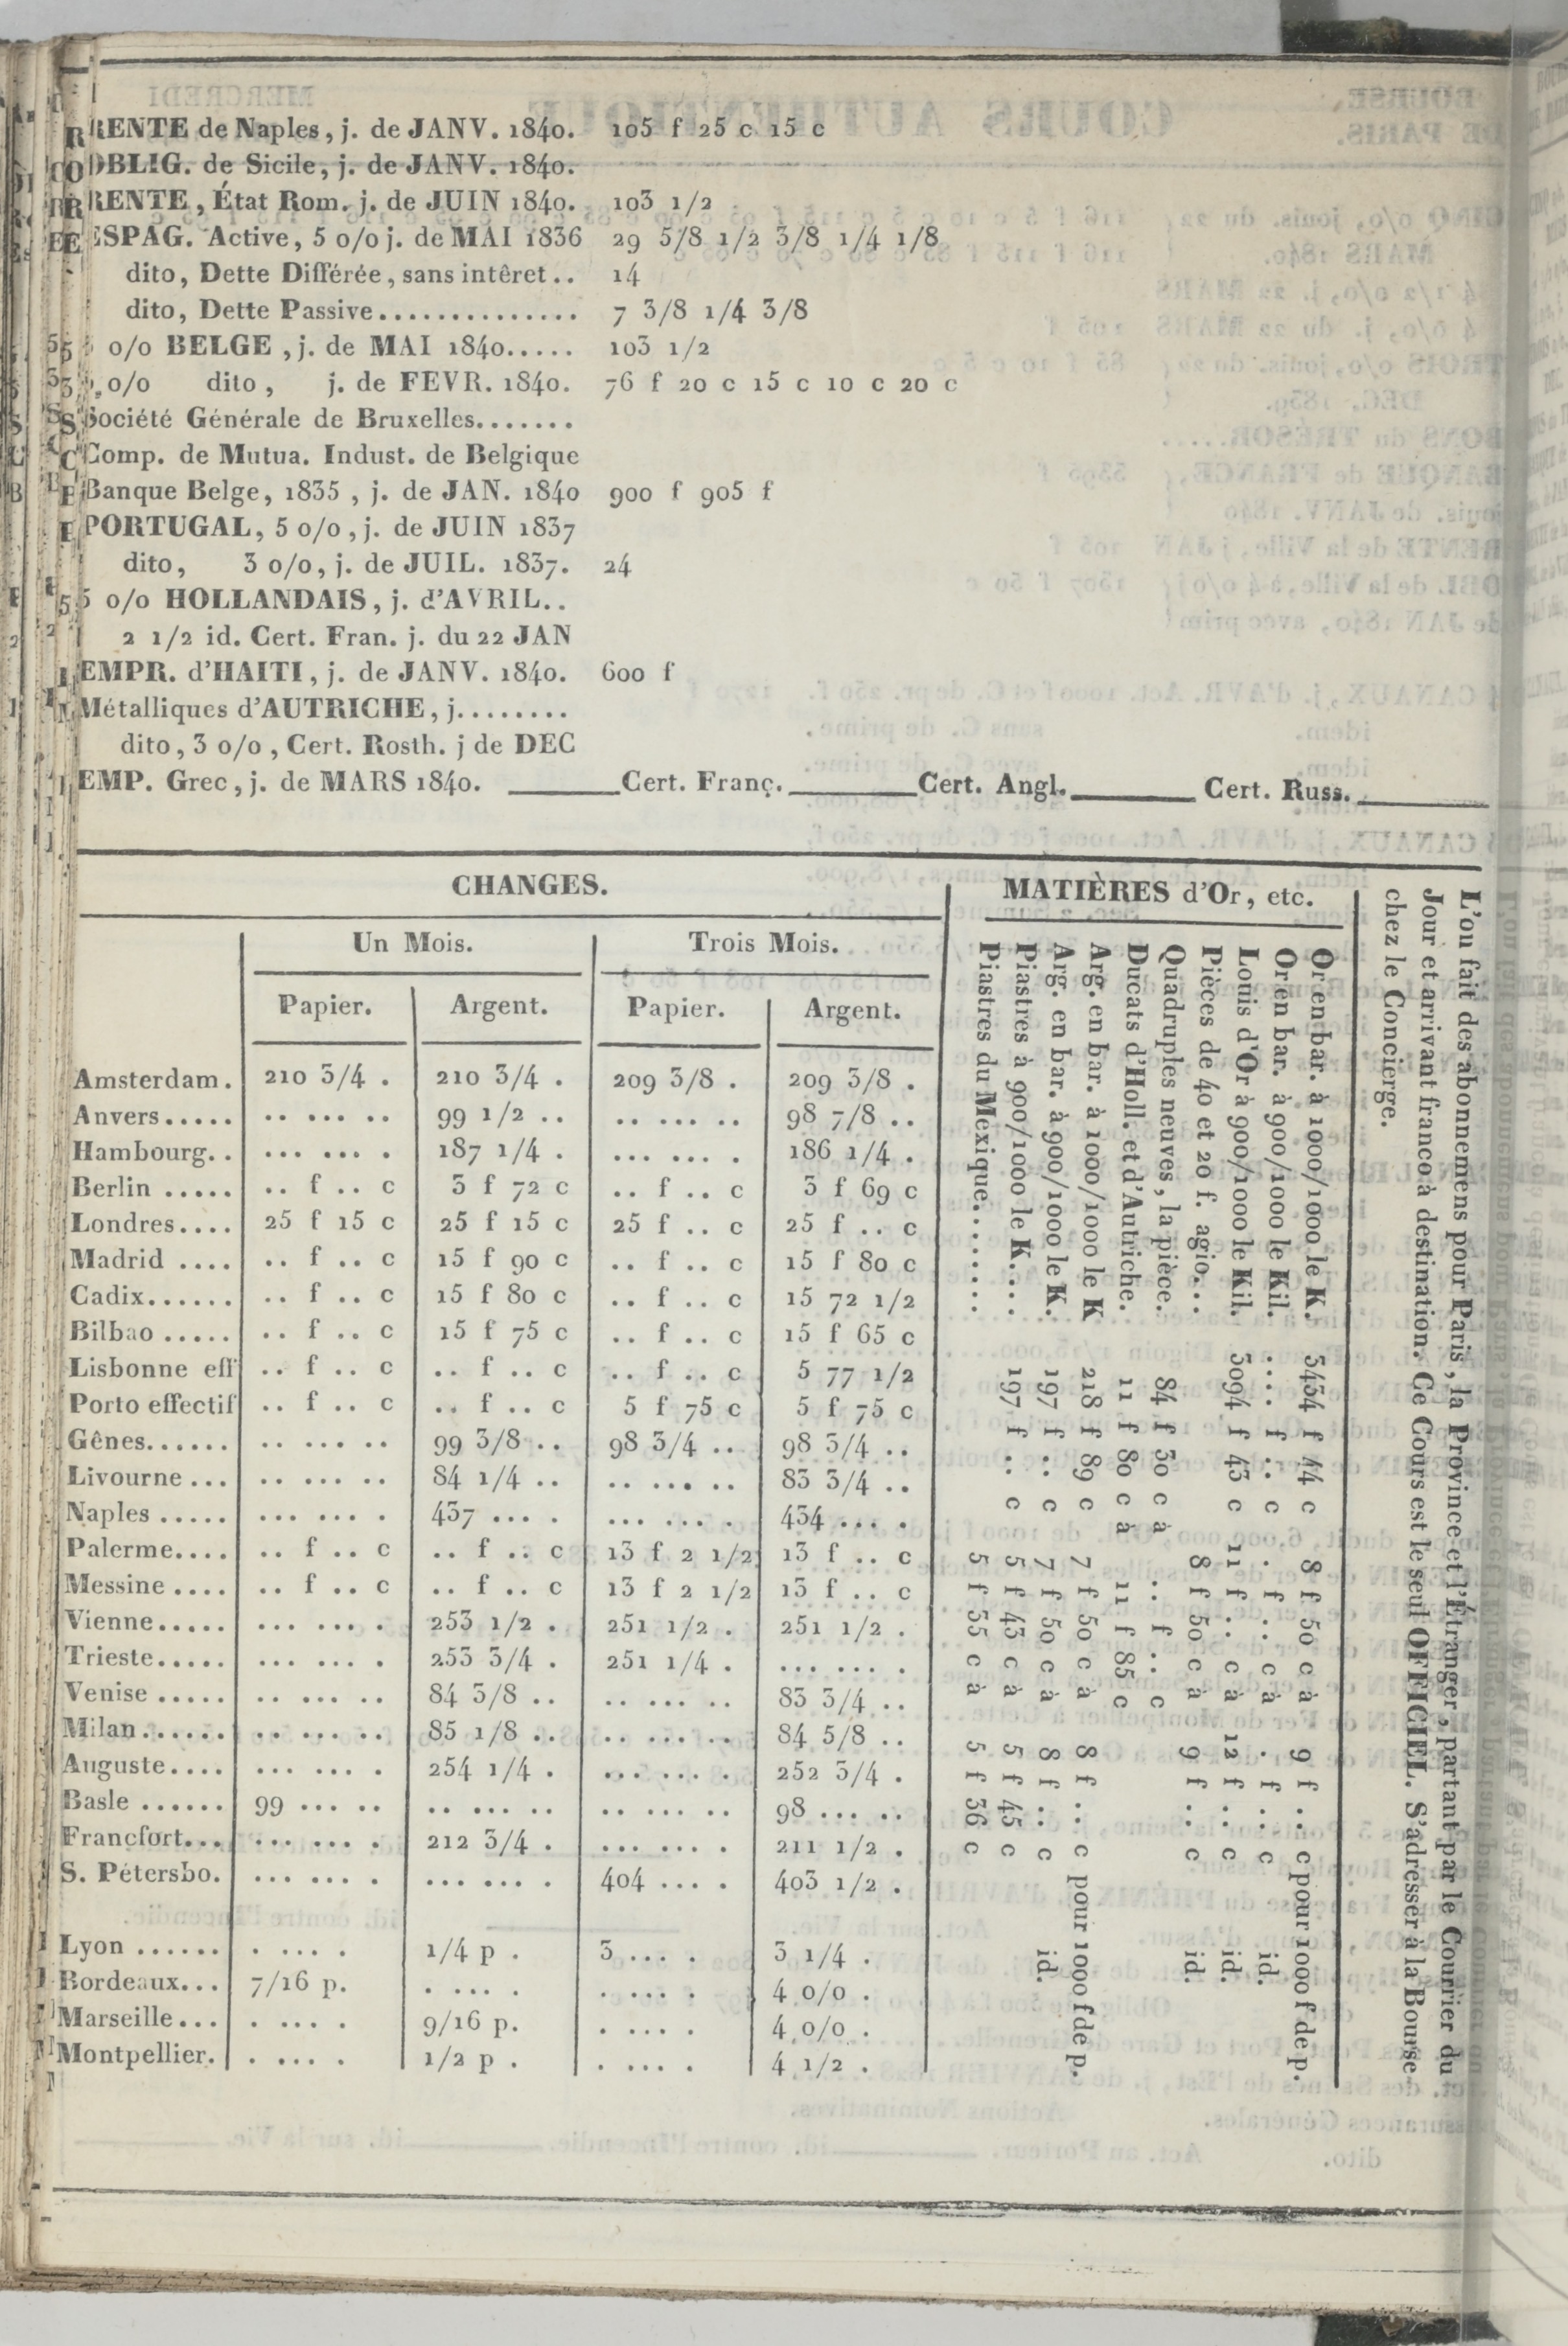 RENTE de Naples, j. de JANV. 1840. 105 f 25 c 15 c
OBLIG. de Sicile, j. de JANV. 1840.
RENTE, État Rom. j. de JUIN 1840. 103 1/2
ESPAG. Active, 5 o/o j. de MAI 1836 29 5/8 1/2 3/8 1/4 1/8
dito, Dette Différée, sans intêret.. 14
dito, Dette Passive.............. 7 3/8 1/4 3/8
5 o/o BELGE, j. de MAI 1840..... 103 1/2
3 o/o dito, j. de FEVR. 1840. 76 f 20 c 15 c 10 c 20 c
Société Générale de Bruxelles.......
Comp. de Mutua. Indust. de Belgique
Banque Belge, 1835, j. de JAN. 1840 900 f 905 f
PORTUGAL, 5 o/o, j. de JUIN 1837
dito, 3 o/o, j. de JUIL. 1837. 24
5 o/o HOLLANDAIS, j. d'AVRIL..
2 1/2 id. Cert. Fran. j. du 22 JAN
EMPR. d'HAITI, j. de JANV. 1840. 600 f
Métalliques d'AUTRICHE, j........
dito, 3 o/o, Cert. Rosth. j de DEC
EMP. Grec, j. de MARS 1840. ______Cert. Franç.______Cert. Angl.______ Cert. Russ.______
CHANGES.
Un Mois. Trois Mois.
Papier. Argent. Papier. Argent.
Amsterdam. 210 3/4 . 210 3/4 . 209 3/8 . 209 3/8 .
Anvers..... .. ... .. 99 1/2 .. .. ... .. 98 7/8 ..
Hambourg.. ... ... . 187 1/4 . ... ... . 186 1/4 .
Berlin ..... .. f .. c 3 f 72 c .. f .. c 3 f 69 c
Londres.... 25 f 15 c 25 f 15 c 25 f .. c 25 f .. c
Madrid .... .. f .. c 15 f 90 c .. f .. c 15 f 80 c
Cadix...... .. f .. c 15 f 80 c .. f .. c 15 72 1/2
Bilbao ..... .. f .. c 15 f 75 c .. f .. c 15 f 65 c
Lisbonne eff .. f .. c .. f .. c .. f .. c 5 77 1/2
Porto effectif .. f .. c .. f .. c 5 f 75 c 5 f 75 c
Gênes...... .. ... .. 99 3/8 .. 98 3/4 .. 98 3/4 ..
Livourne ... .. ... .. 84 1/4 .. .. ... .. 83 3/4 ..
Naples ..... ... ... . 437 ... . ... ... . 434 ... .
Palerme.... .. f .. c .. f .. c 13 f 2 1/2 13 f .. c
Messine .... .. f .. c .. f .. c 13 f 2 1/2 13 f .. c
Vienne..... ... ... . 253 1/2 . 251 1/2 . 251 1/2 .
Trieste..... ... ... . 253 3/4 . 251 1/4 . ... ... .
Venise ..... .. ... .. 84 3/8 .. .. ... .. 83 3/4 ..
Milan ...... .. ... .. 85 1/8 .. .. ... .. 84 5/8 ..
Auguste.... ... ... . 254 1/4 . ... ... . 252 3/4 .
Basle ...... 99 ... .. .. ... .. .. ... .. 98 ... ..
Francfort... ... ... . 212 3/4 . ... ... . 211 1/2 .
S. Pétersbo. ... ... . ... ... . 404 ... . 403 1/2 .
Lyon ...... . ... . 1/4 p . 3 ... . 3 1/4 .
Bordeaux... 7/16 p. . ... . . ... . 4 0/0 .
Marseille... . ... . 9/16 p. . ... . 4 0/0 .
Montpellier. . ... . 1/2 p . . ... . 4 1/2 .
MATIÈRES d'Or, etc.
Or en bar. à 1000/1000 le K. 3434 f 44 c 8 f 50 c à 9 f .. c pour 1000 f de p.
Or en bar. à 900/1000 le Kil. .... f .. c . f .. c à . f .. c id.
Louis d'Or à 900/1000 le Kil. 3094 f 43 c 11 f .. c à 12 f .. c id.
Pièces de 40 et 20 f. agio... 8 f 50 c à 9 f .. c id.
Quadruples neuves, la pièce. 84 f 30 c à .. f .. c
Ducats d'Holl. et d'Autriche. 11 f 80 c à 11 f 85 c
Arg. en bar. à 1000/1000 le K 218 f 89 c 7 f 50 c à 8 f .. c pour 1000 f de p.
Arg. en bar. à 900/1000 le K. 197 f .. c 7 f 50 c à 8 f .. c id.
Piastres à 900/1000 le K.... 197 f .. c 5 f 43 c à 5 f 45 c
Piastres du Mexique........ 5 f 35 c à 5 f 36 c
L'on fait des abonnemens pour Paris, la Province et l'Étranger, partant par le Courrier du
Jour et arrivant franco à destination. Ce Cours est le seul OFFICIEL. S'adresser à la Bourse
chez le Concierge.